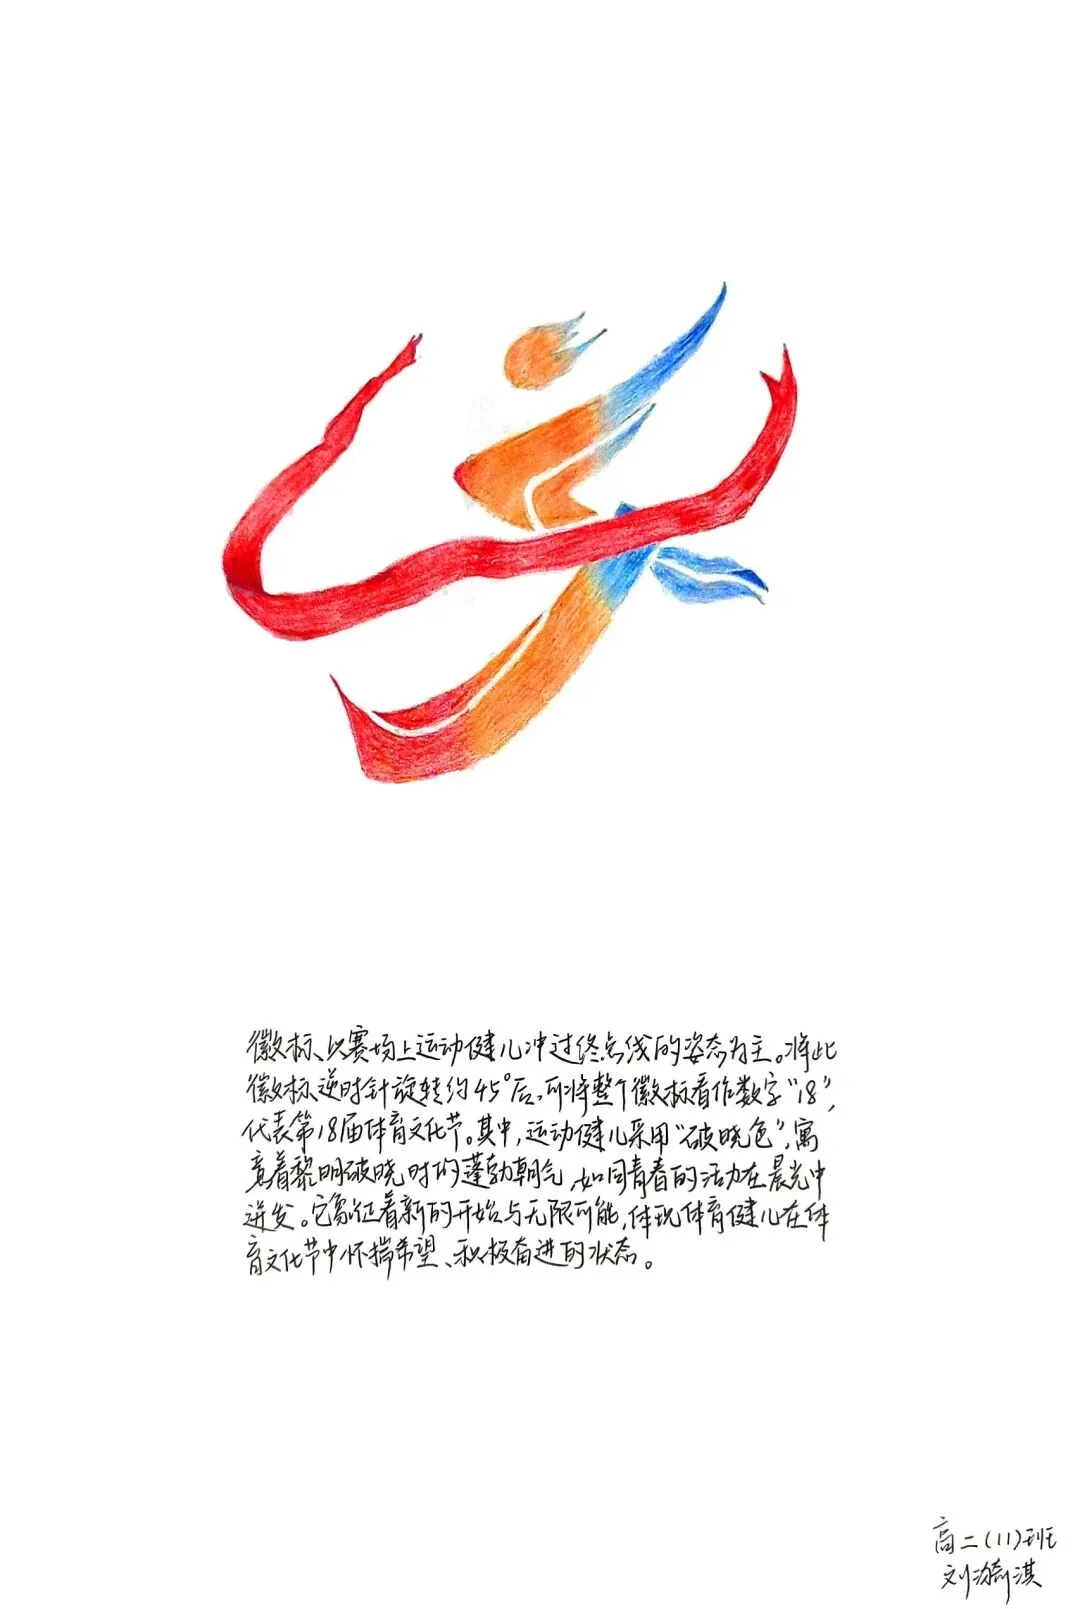 徽标以赛场上运动健儿冲过终点线的姿态为主。将此
徽标逆时针旋转约45°后,可将整个徽标看作数字“18”,
代表第18届体育文化节。其中,运动健儿采用“破晓色”,寓
意着黎明破晓时的蓬勃朝气,如同青春的活力在晨光中
迸发。它象征着新的开始与无限可能,体现体育健儿在体
育文化节中怀揣希望、积极奋进的状态。
高二(11)班
刘漪淇